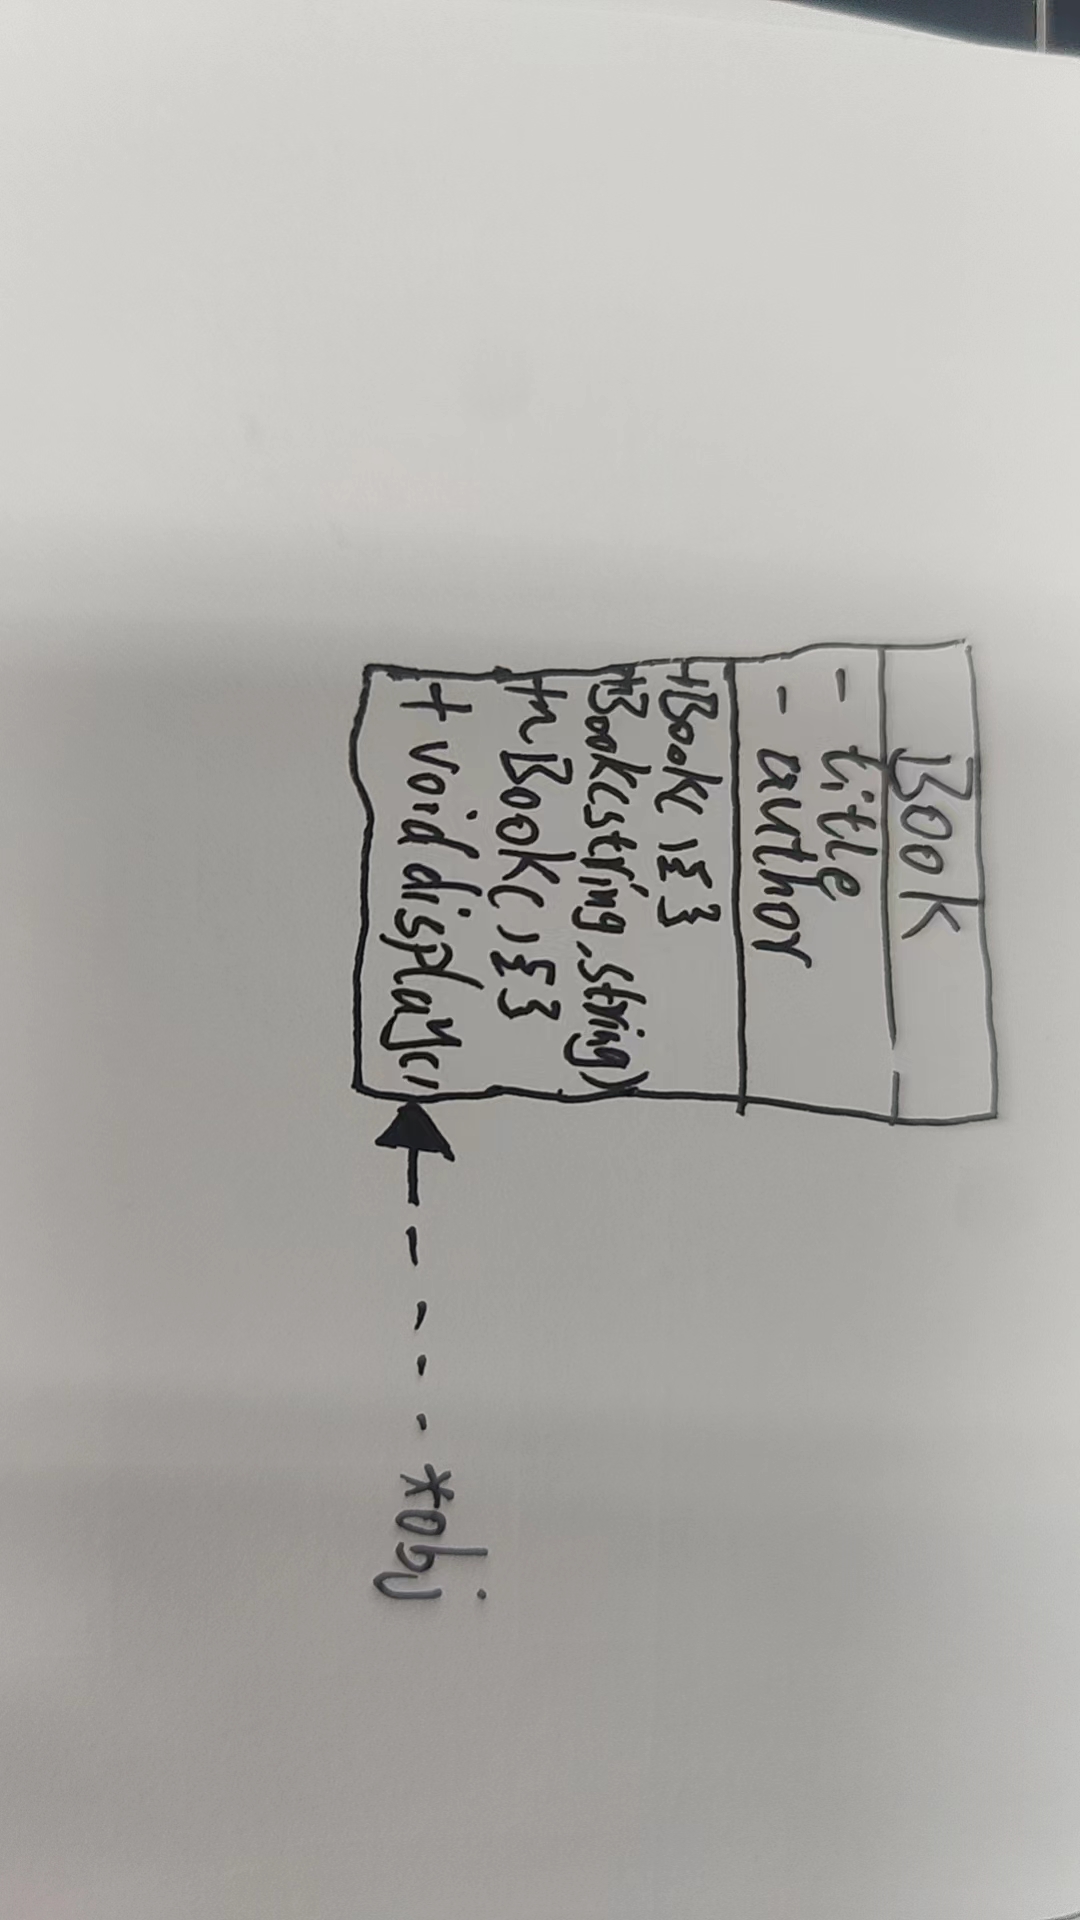 Book
- title
- author
+Book(){}
+Book(string,string)
+~Book(){}
+ void display()
*obj